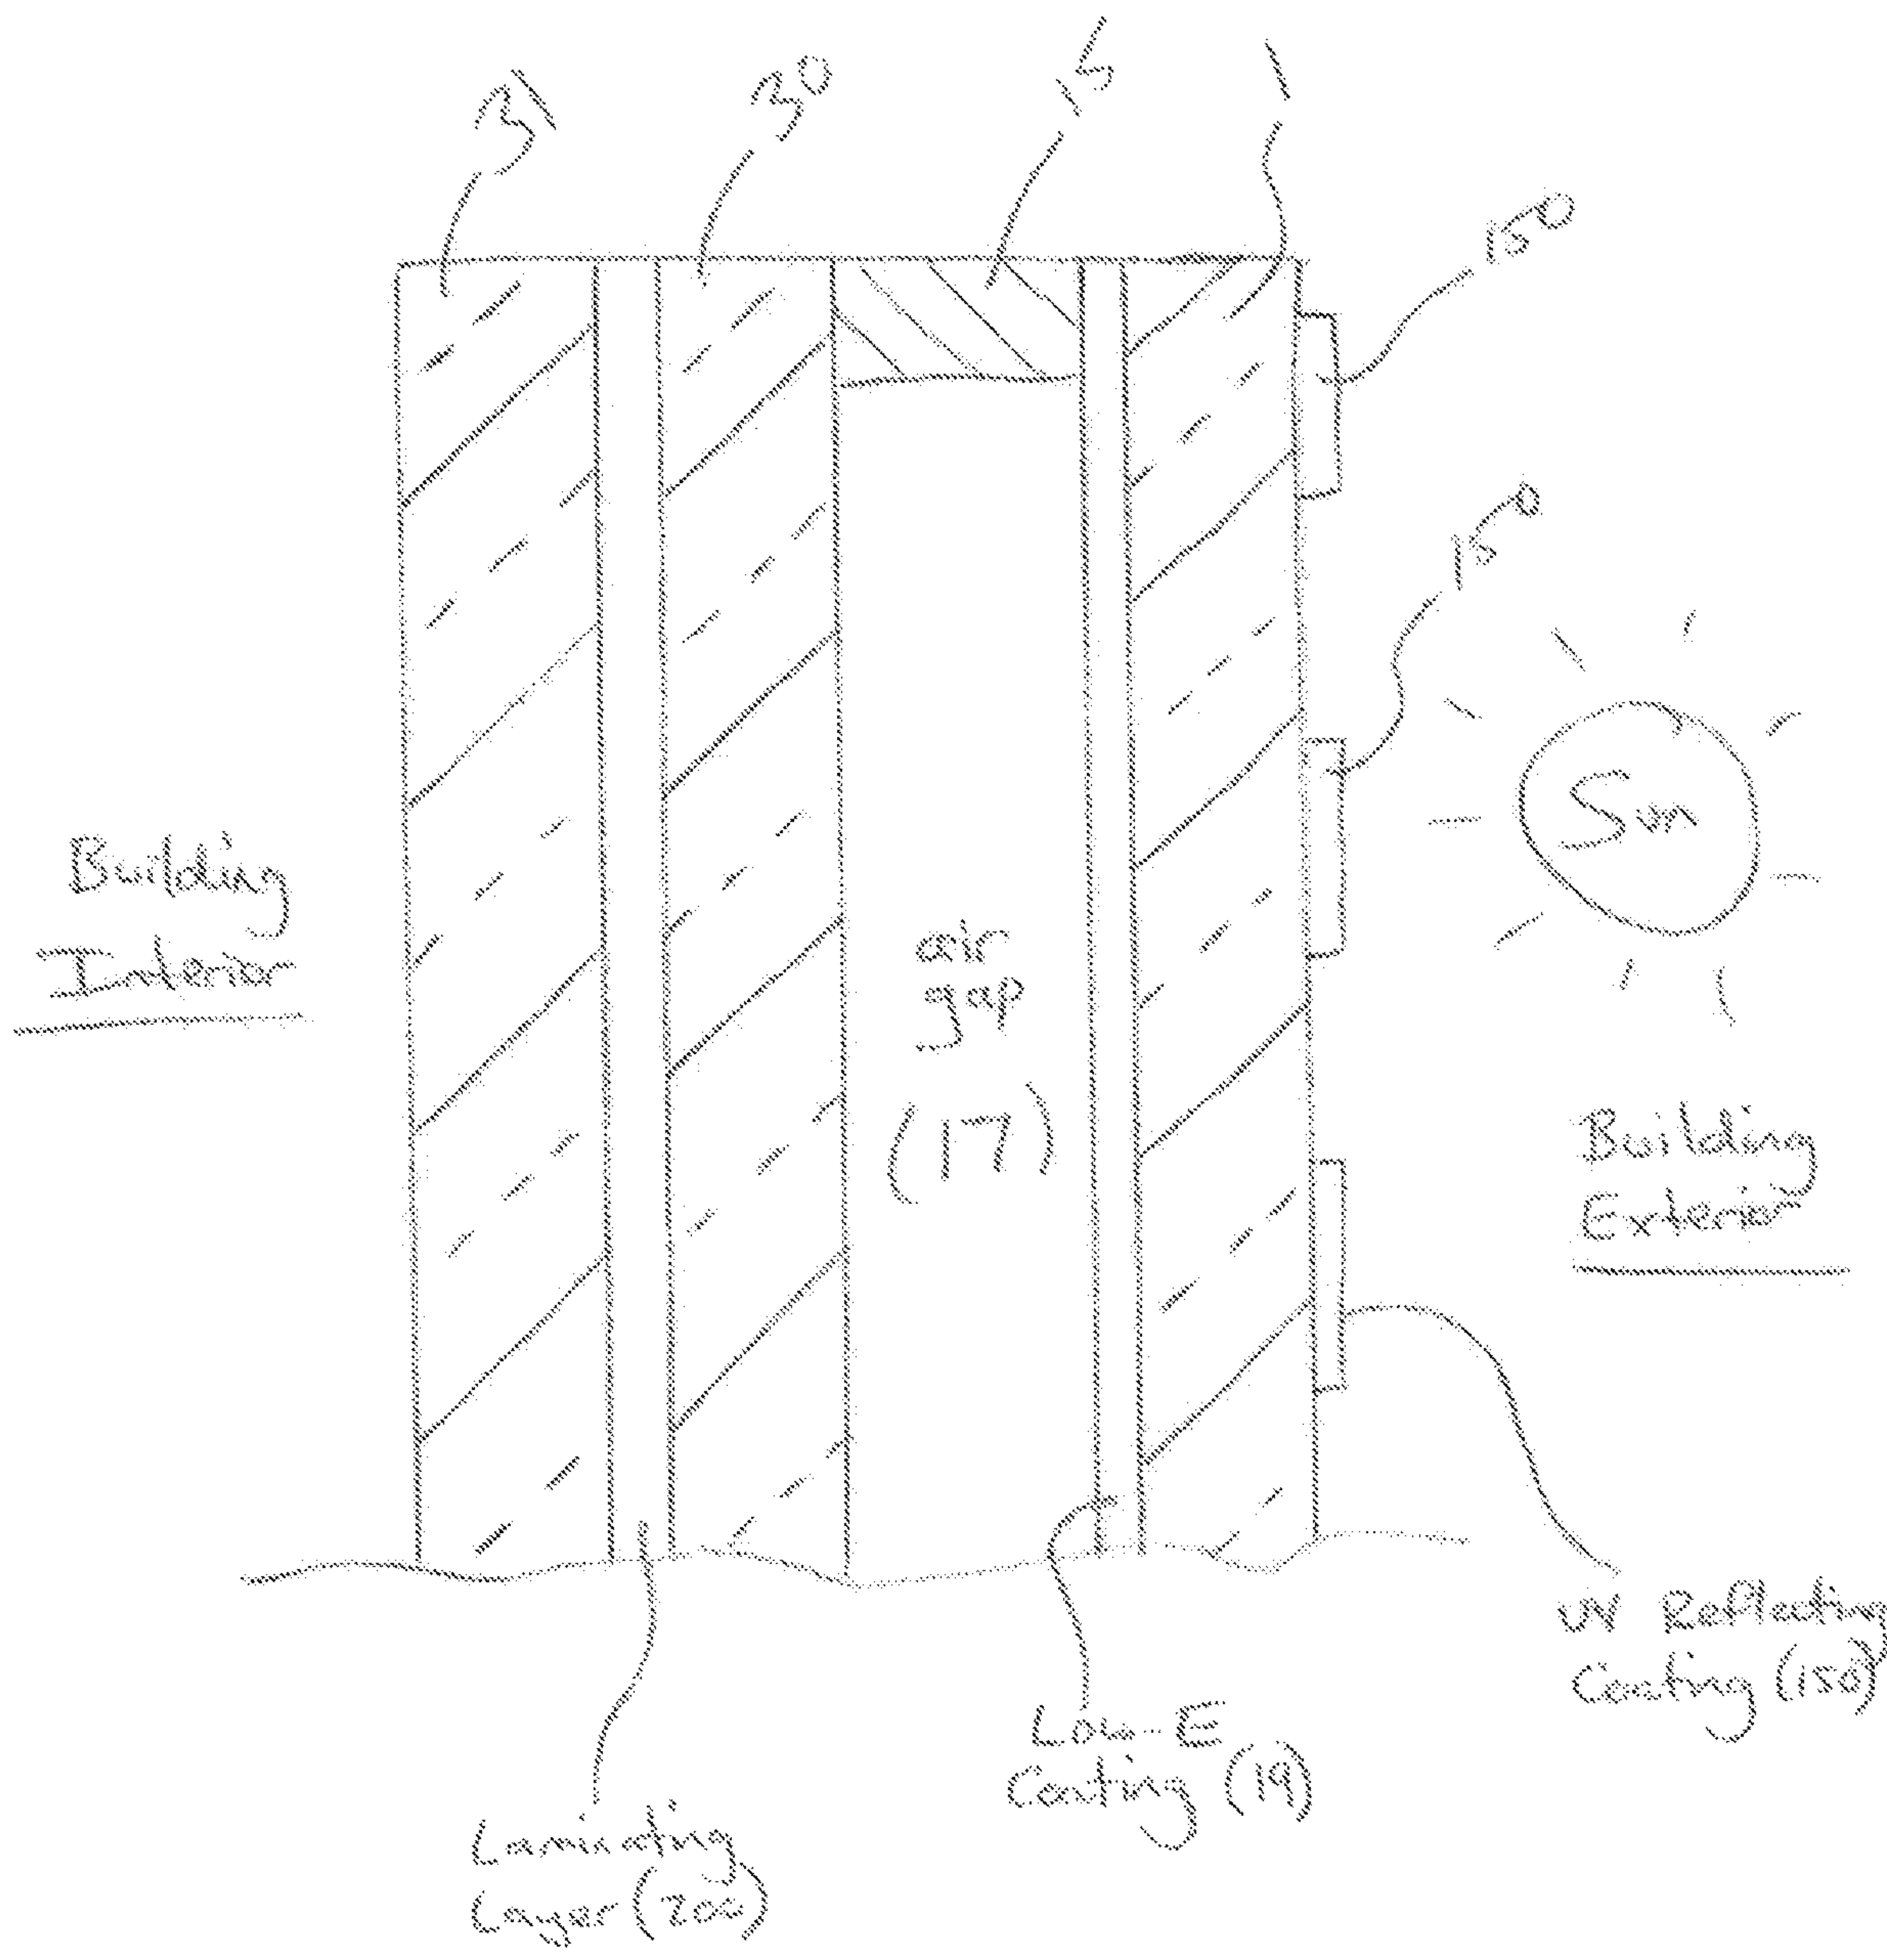 31
30
15
1
150
150
Sun
Building
Interior
air
gap
(17)
Building
Exterior
UV Reflecting
Coating (150)
Low-E
Coating (19)
Laminating
Layer (200)